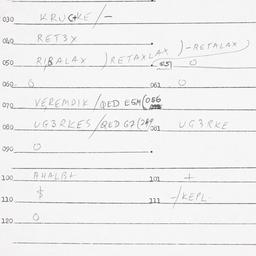 030 KRUCKE/-
040 RET3X
050 RIBALAX )RETAXLAX )-RETALAX)
051 O
060 O 061 O
070 VEREMDIK/QED EGM(
080 UG3RKES/QED GZ( 081 UG3RKE
090 O
100 AHALB+ 101 +
110 $ 111 -/KEPL-
120 O